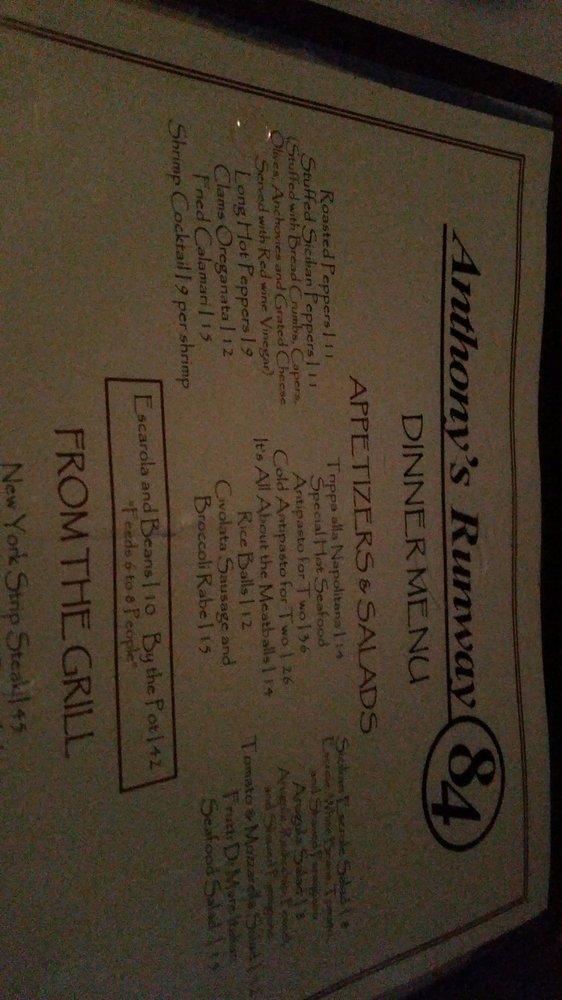 Anthony's Runway 84
DINNER MENU
APPETIZERS & SALADS
Roasted Peppers | 11
Stuffed Sicilian Peppers | 11
(Stuffed with Bread Crumbs, Capers,
Olives, Anchovies and Grated Cheese
Served with Red wine Vinegar)
Long Hot Peppers | 9
Clams Oreganata | 12
Fried Calamari | 15
Shrimp Cocktail | 9 per shrimp
Trippa alla Napolitana | 14
Special Hot Seafood
Antipasto for Two | 36
Cold Antipasto for Two | 26
It's All About the Meatballs | 14
Rice Balls | 12
Civolata Sausage and
Broccoli Rabe | 15
Sicilian Escarole Salad | 8
and Shaved Parmigiano
Arugula Salad | 8
and Shaved Parmigiano
Tomato & Mozzarella Salad | 12
Frutti Di Mare Italian
Seafood Salad | 15
Escarola and Beans | 10 By the Pot | 42
"Feeds 6 to 8 People"
FROM THE GRILL
New York Strip Steak | 45